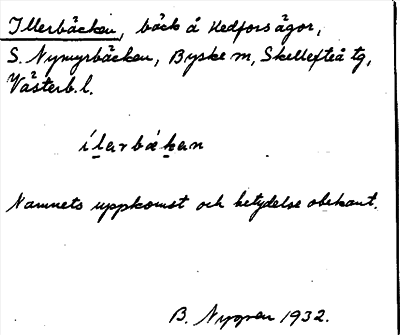 Illerbäcken, bäck å Hedforsägor,
S. Nymyrbäcken, Byske m, Skellefteå tg,
Västerb. l.
ílarbækan
Namnets uppkomst och betydelse obekant.
B. Nygren 1932.